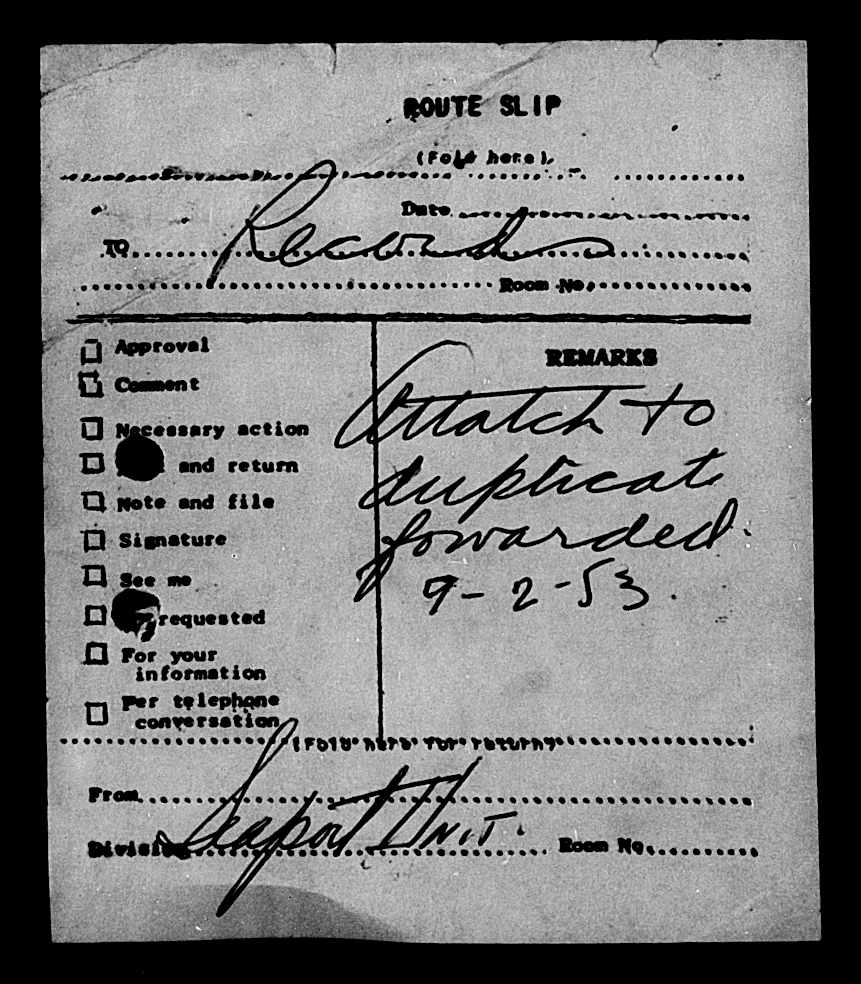 ROUTE SLIP
(Fold here)
Date
TO Records
Room No.
REMARKS
Approval
Comment
Necessary action
and return
Note and file
Signature
See me
requested
For your
information
Per telephone
conversation
Attatch to
duplicate
fowarded.
9-2-53.
(Fold here for return)
From
Division Seaport Unit.
Room No.